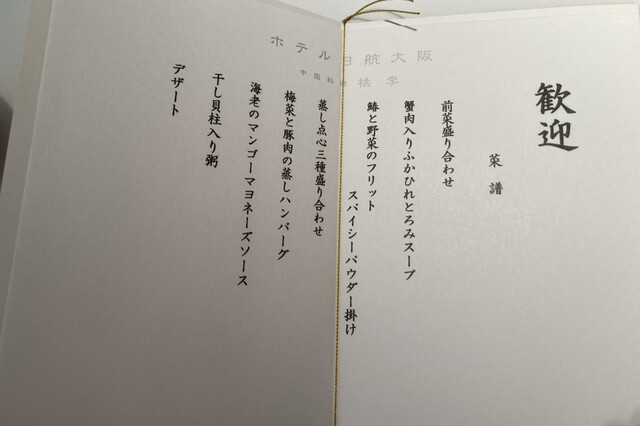 歓迎
菜譜
前菜盛り合わせ
蟹肉入りふかひれとろみスープ
鰆と野菜のフリット
スパイシーパウダー掛け
蒸し点心三種盛り合わせ
梅菜と豚肉の蒸しハンバーグ
海老のマンゴーマヨネーズソース
干し貝柱入り粥
デザート
ホテル日航大阪
中国料理 桃李